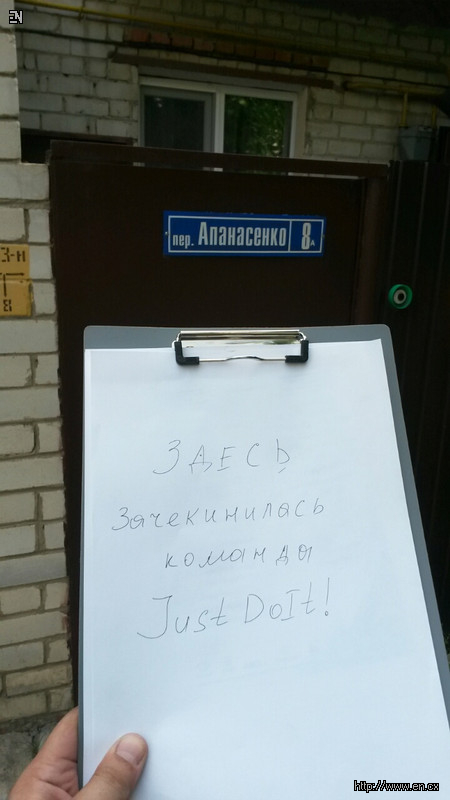 EN
пер. Апанасенко 8А
З-н
8
ЗДЕСЬ
Зачекинилась
команда
Just DoIt!
http://www.en.cx